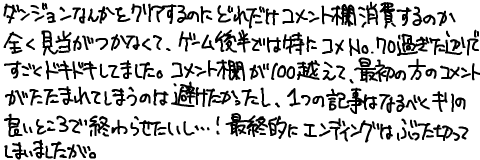 ダンジョンなんかをクリアするのにどれだけコメント欄消費するのか
全く見当がつかなくて、ゲーム後半では特にコメNo.70過ぎた辺りで
すごくドキドキしてました。コメント欄が100越えて、最初の方のコメント
がたたまれてしまうのは避けたかったし、1つの記事はなるべくキリの
良いところで終わらせたいし…！最終的にエンディングはぶった切って
しまいましたが。